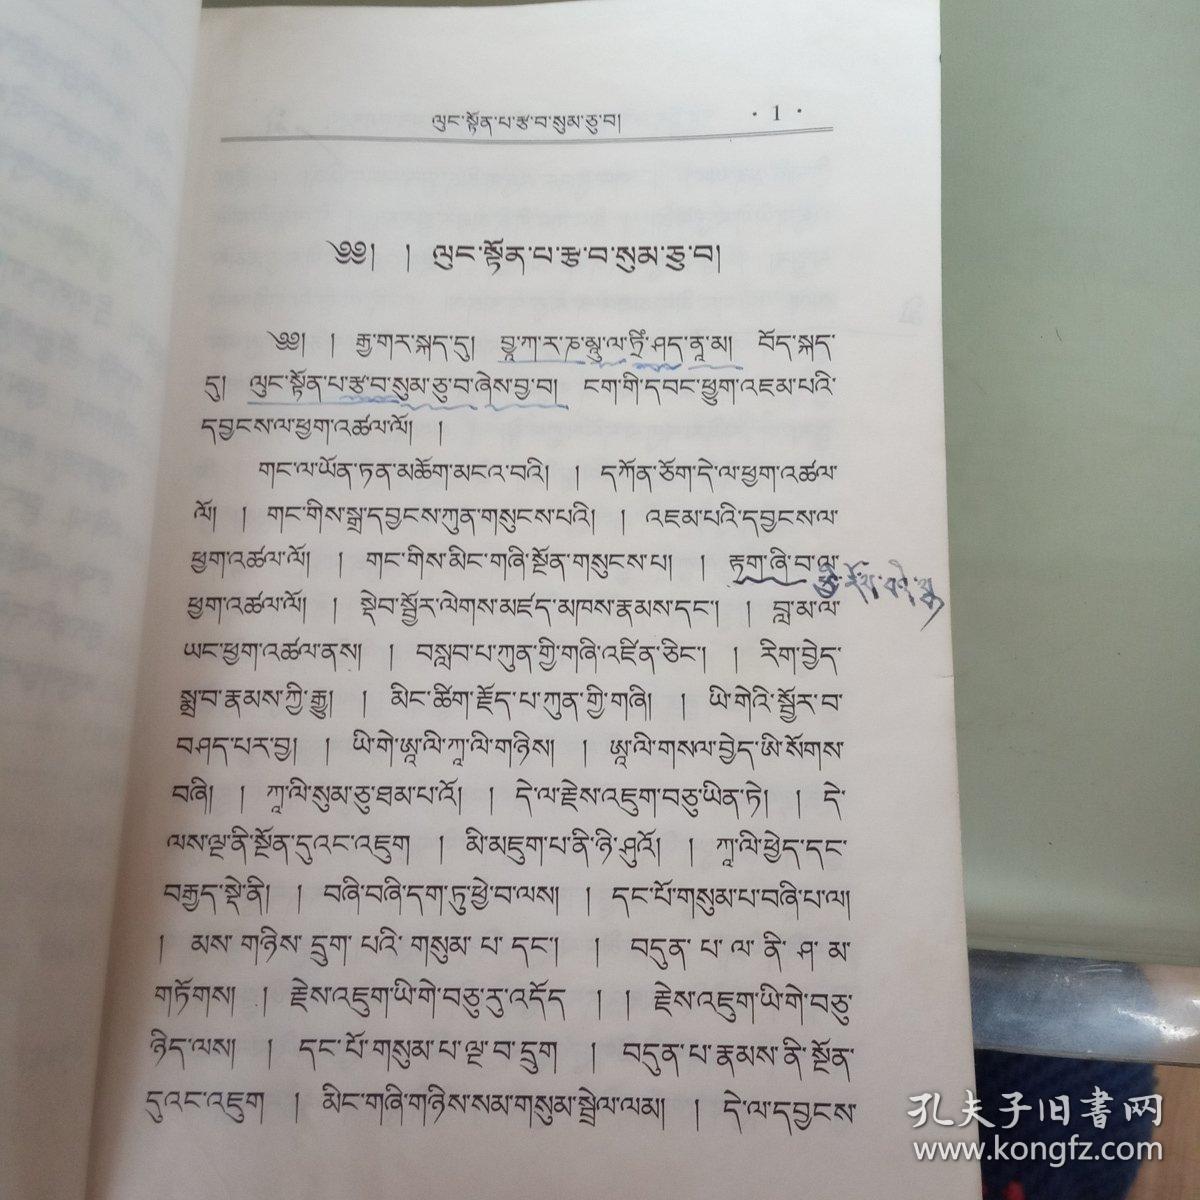 ལུང་སྟོན་པ་རྩ་བ་སུམ་ཅུ་བ། · 1 ·
༄༅། །ལུང་སྟོན་པ་རྩ་བ་སུམ་ཅུ་བ།
༄༅། །རྒྱ་གར་སྐད་དུ། བྱཱ་ཀ་ར་ཎ་མཱུ་ལ་ཏྲིཾ་ཤད་ནཱ་མ། བོད་སྐད་
དུ། ལུང་སྟོན་པ་རྩ་བ་སུམ་ཅུ་བ་ཞེས་བྱ་བ། ངག་གི་དབང་ཕྱུག་འཇམ་པའི་
དབྱངས་ལ་ཕྱག་འཚལ་ལོ། །
གང་ལ་ཡོན་ཏན་མཆོག་མངའ་བའི། །དཀོན་ཅོག་དེ་ལ་ཕྱག་འཚལ་
ལོ། །གང་གིས་སྒྲ་དབྱངས་ཀུན་གསུངས་པའི། །འཇམ་པའི་དབྱངས་ལ་
ཕྱག་འཚལ་ལོ། །གང་གིས་མིང་གཞི་སྔོན་གསུངས་པ། །རྟག་ཞི་བ་ལ་
ཕྱག་འཚལ་ལོ། །སྡེབ་སྦྱོར་ལེགས་མཛད་མཁས་རྣམས་དང་། །བླ་མ་ལ་
ཡང་ཕྱག་འཚལ་ནས། །བསླབ་པ་ཀུན་གྱི་གཞི་འཛིན་ཅིང་། །རིག་བྱེད་
སྨྲ་བ་རྣམས་ཀྱི་རྒྱུ། །མིང་ཚིག་རྗོད་པ་ཀུན་གྱི་གཞི། །ཡི་གེའི་སྦྱོར་བ་
བཤད་པར་བྱ། །ཡི་གེ་ཨཱ་ལི་ཀཱ་ལི་གཉིས། །ཨཱ་ལི་གསལ་བྱེད་ཨི་སོགས་
བཞི། །ཀཱ་ལི་སུམ་ཅུ་ཐམ་པའོ། །དེ་ལ་རྗེས་འཇུག་བཅུ་ཡིན་ཏེ། །དེ་
ལས་ལྔ་ནི་སྔོན་དུའང་འཇུག །མི་མཇུག་པ་ནི་ཉི་ཤུའོ། །ཀཱ་ལི་ཕྱེད་དང་
བརྒྱད་སྡེ་ནི། །བཞི་བཞི་དག་ཏུ་ཕྱེ་བ་ལས། །དང་པོ་གསུམ་པ་བཞི་པ་ལ།
།མས་གཉིས་དྲུག་པའི་གསུམ་པ་དང་། །བདུན་པ་ལ་ནི་ཤ་མ་
གཏོགས། །རྗེས་འཇུག་ཡི་གེ་བཅུ་རུ་འདོད །།རྗེས་འཇུག་ཡི་གེ་བཅུ་
ཉིད་ལས། །དང་པོ་གསུམ་པ་ལྔ་བ་དྲུག །བདུན་པ་རྣམས་ནི་སྔོན་
དུའང་འཇུག །མིང་གཞི་གཉིས་སམ་གསུམ་སྦྲེལ་ལམ། །དེ་ལ་དབྱངས་
孔夫子旧书网
www.kongfz.com